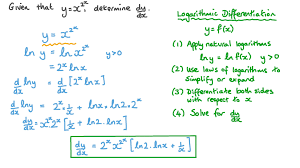 Given that y = x^{2^x}, determine dy/dx.
y = x^{2^x}
ln y = ln x^{2^x} y>0
= 2^x ln x
d/dx ln y = d/dx [2^x ln x]
d/dx ln y = 2^x · 1/x + ln x · ln 2 · 2^x
dy/dx = x^{2^x} 2^x [1/x + ln 2 · ln x]
dy/dx = 2^x x^{2^x} [ln 2 · ln x + 1/x]
Logarithmic Differentiation
y = f(x)
(1) Apply natural logarithms
ln y = ln f(x) y>0
(2) Use laws of logarithms to
simplify or expand
(3) Differentiate both sides
with respect to x
(4) Solve for dy/dx